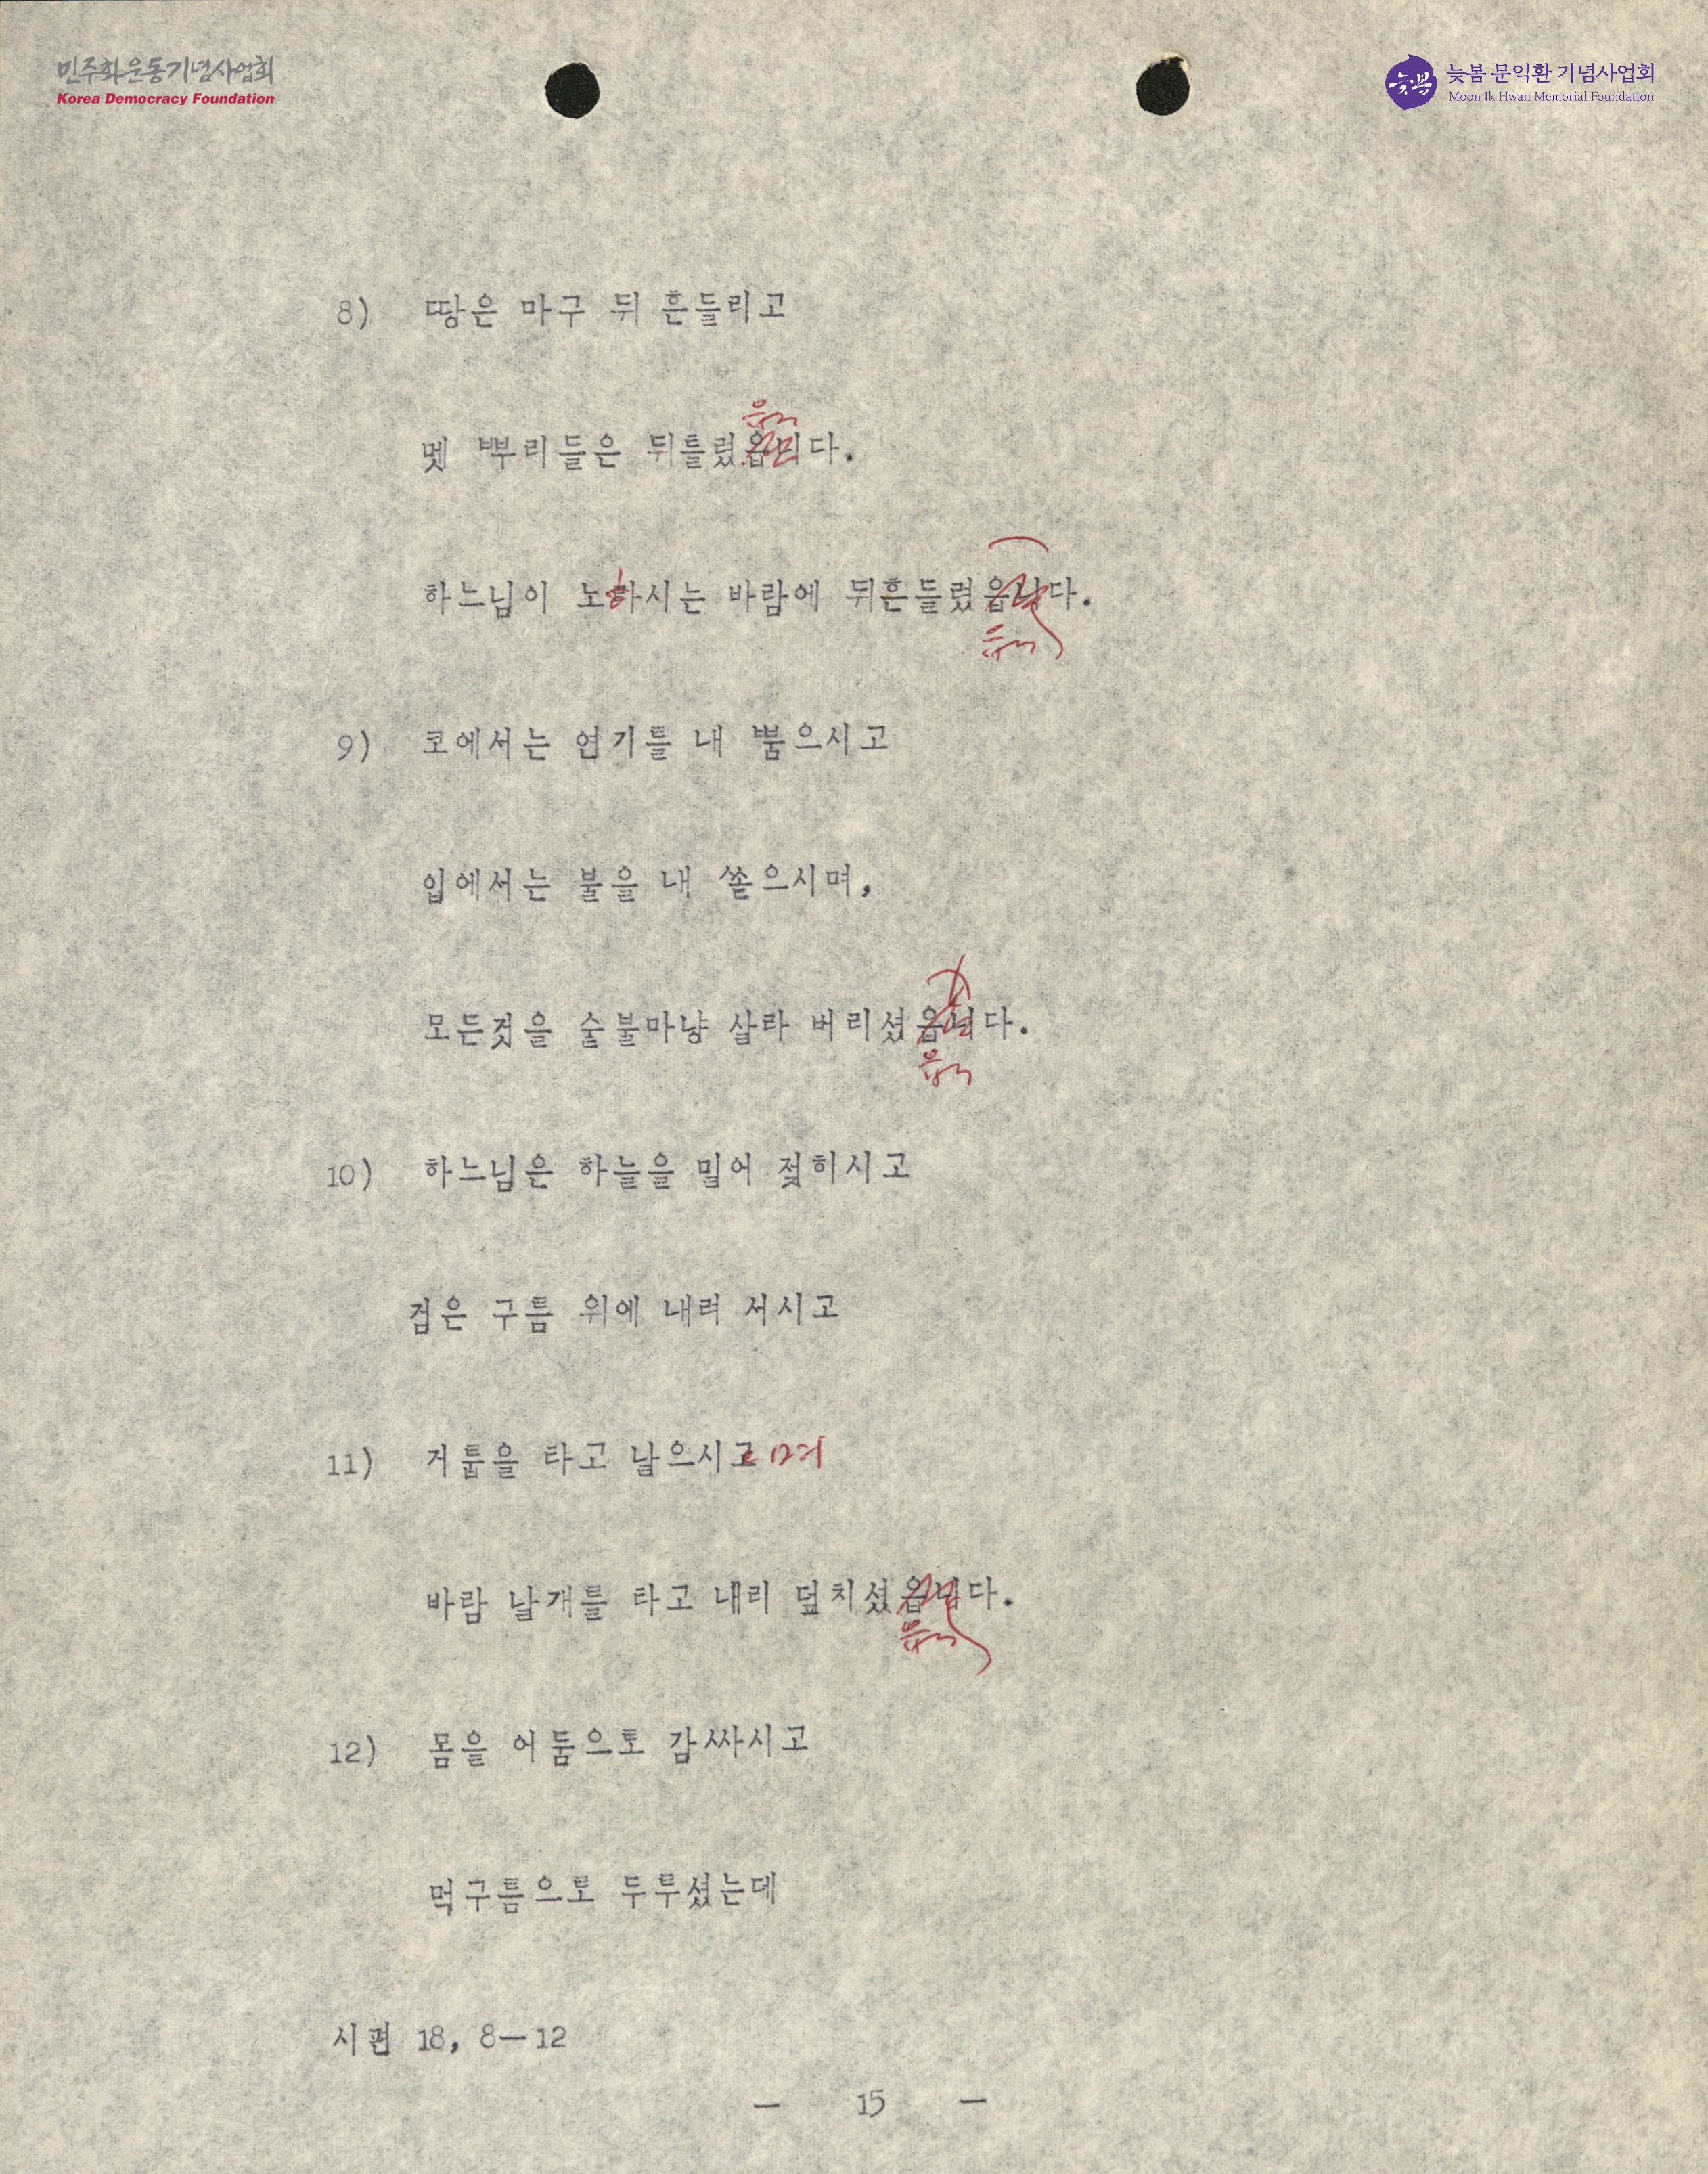 민주화운동기념사업회
Korea Democracy Foundation
늦봄
늦봄 문익환 기념사업회
Moon Ik Hwan Memorial Foundation
8) 땅은 마구 뒤 흔들리고
멧 뿌리들은 뒤틀렸읍니다.
하느님이 노하시는 바람에 뒤흔들렸읍니다.
9) 코에서는 연기를 내 뿜으시고
입에서는 불을 내 쏟으시며,
모든것을 숯불마냥 살라 버리셨읍니다.
10) 하느님은 하늘을 밀어 젖히시고
검은 구름 위에 내려 서시고
11) 거룹을 타고 날으시고 며
바람 날개를 타고 내리 덮치셨읍니다.
12) 몸을 어둠으로 감싸시고
먹구름으로 두루셨는데
시편 18, 8—12
— 15 —